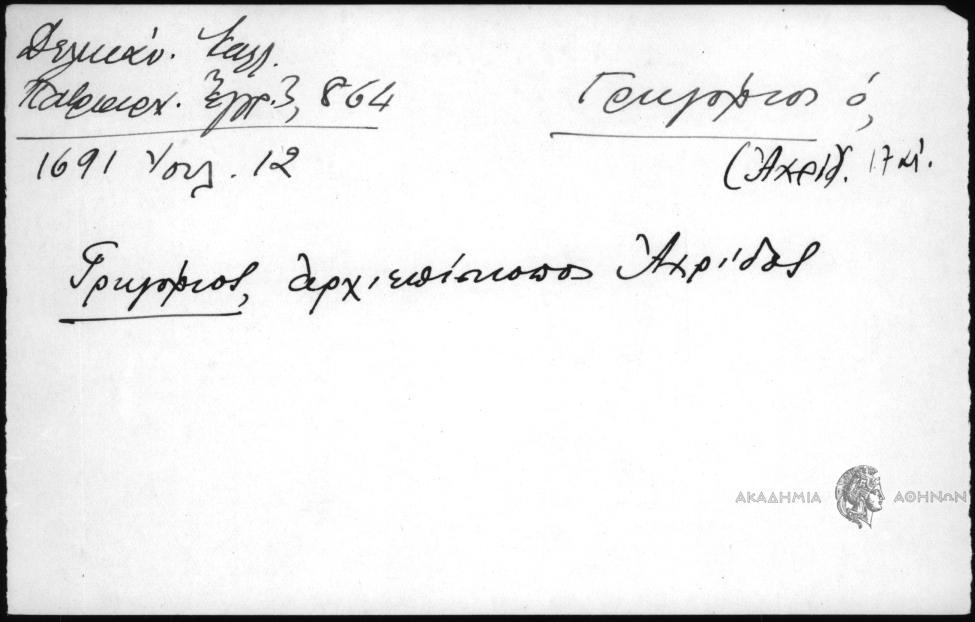 Δελικάν. Καλλ.
Πατριαρχ. Ἔγγρ. 3, 864
1691 Ἰουλ. 12
Γρηγόριος ὁ,
(Ἀχρίδ. 17 αἰ.
Γρηγόριος, ἀρχιεπίσκοπος Ἀχρίδος
ΑΚΑΔΗΜΙΑ ΑΘΗΝΩΝ